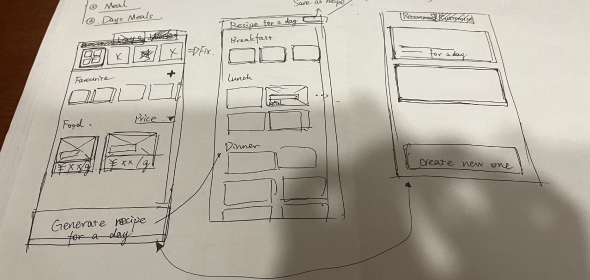 Meal
Days Meals
Save as recipe
Days Meals
x
x
⇒ Fix
Favourite +
Food.
Price ▼
¥ xx/g
¥ xx/g
Generate recipe
for a day
Recipe for a day
Breakfast
Lunch
...
Dinner
for a day
Create new one